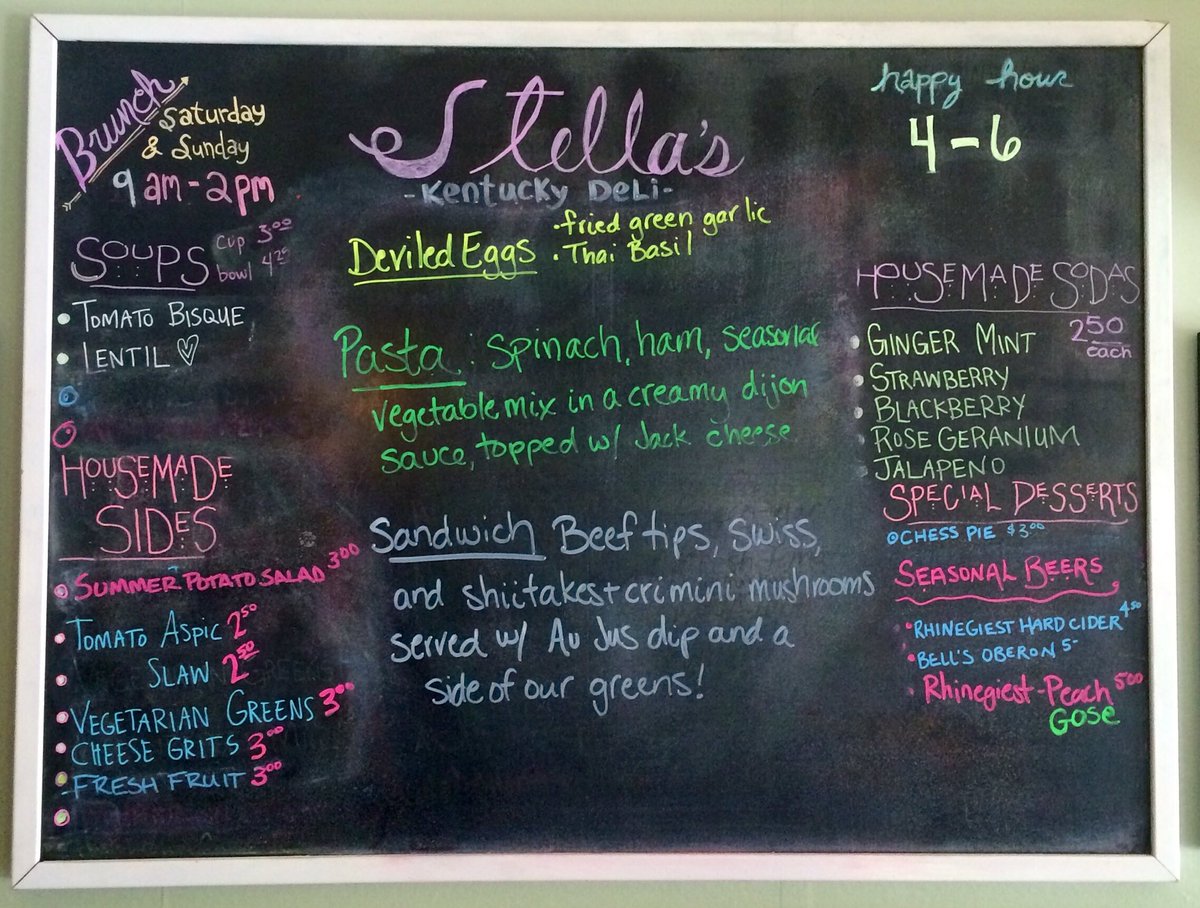 Brunch
Saturday
& Sunday
9 am - 2 pm
SOUPS
cup 3.00
bowl 4.25
• TOMATO BISQUE
• LENTIL ♡
HOUSEMADE
SIDES
SUMMER POTATO SALAD 3.00
TOMATO ASPIC 2.50
SLAW 2.50
VEGETARIAN GREENS 3.00
CHEESE GRITS 3.00
FRESH FRUIT 3.00
Stella's
- Kentucky DeLi -
Deviled Eggs
• fried green garlic
• Thai Basil
Pasta : Spinach, ham, seasonal
vegetable mix in a creamy dijon
sauce, topped w/ Jack cheese
Sandwich Beef tips, Swiss,
and shiitakes + crimini mushrooms
served w/ Au Jus dip and a
side of our greens!
happy hour
4 - 6
HOUSEMADE SODAS
2.50
each
• GINGER MINT
• STRAWBERRY
• BLACKBERRY
• ROSE GERANIUM
JALAPENO
SPECIAL DESSERTS
CHESS PIE $3.00
SEASONAL BEERS
• RHINEGIEST HARD CIDER 4.50
• BELL'S OBERON 5-
• Rhinegiest - Peach 5.00
GOSE